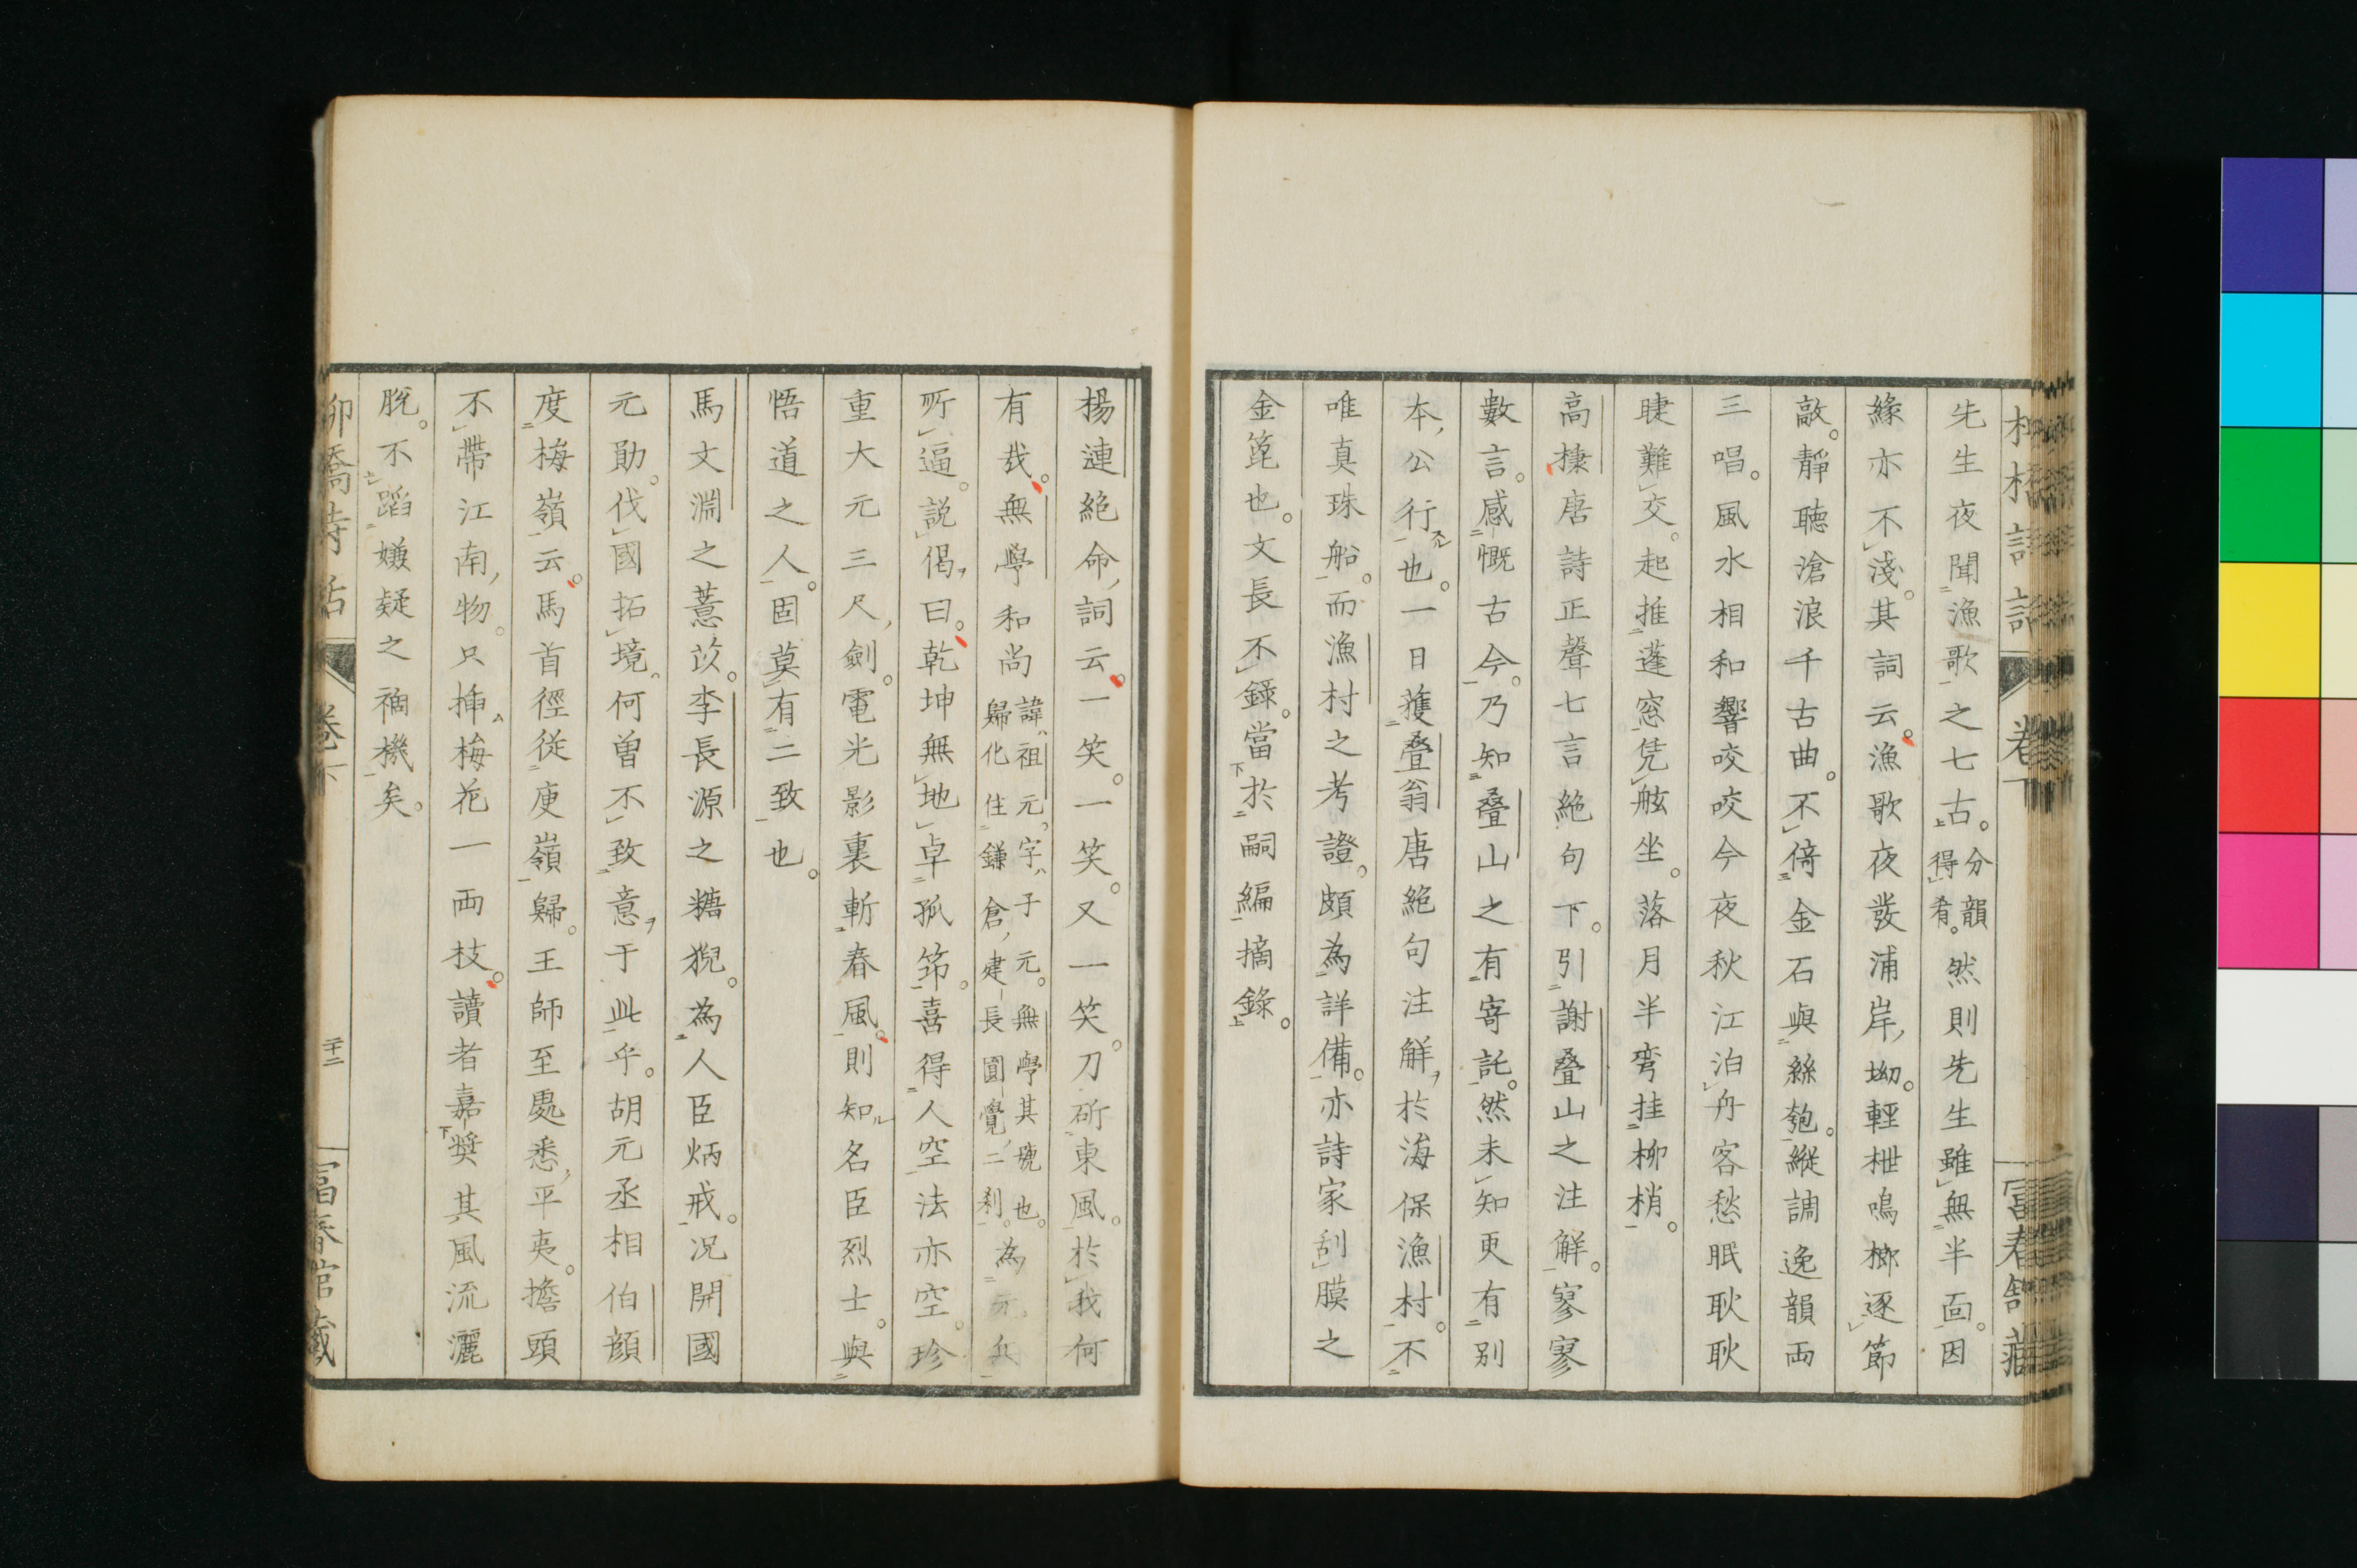 先生夜聞漁歌之七古。分韻得肴。然則先生雖無半面。因
緣亦不淺。其詞云。漁歌夜發浦岸坳。輕枻鳴榔逐節
敲。靜聽滄浪千古曲。不倚金石與絲匏。縱調逸韻兩
三唱。風水相和響咬咬今夜秋江泊舟客愁眠耿耿
睫難交。起推蓬窓凭舷坐。落月半彎挂柳梢。
高棅唐詩正聲七言絶句下。引謝疊山之注解。寥寥
數言。感慨古今。乃知疊山之有寄託。然未知更有別
本公行也。一日獲疊翁唐絶句注解於海保漁村。不
唯真珠船。而漁村之考證。頗為詳備。亦詩家刮膜之
金箆也。文長不錄。當於嗣編摘錄。
楊連絶命詞云。一笑。一笑。又一笑。刀斫東風。於我何
有哉。無學和尚諱祖元。字子元。無學其號也。歸化住鎌倉建長圓覺二刹。為元兵
所逼。説偈曰。乾坤無地卓孤筇。喜得人空法亦空。珍
重大元三尺劍。電光影裏斬春風。則知名臣烈士。與
悟道之人。固莫有二致也。
馬文淵之薏苡。李長源之糖猊。為人臣炳戒。況開國
元勛。伐國拓境。何曽不致意于此乎。胡元丞相伯顔
度梅嶺云。馬首徑從庾嶺歸。王師至處悉平夷。擔頭
不帶江南物。只挿梅花一両枝。讀者嘉奬其風流灑
脱。不蹈嫌疑之禍機矣。
柳橋詩話 卷下 二十二 富春館藏